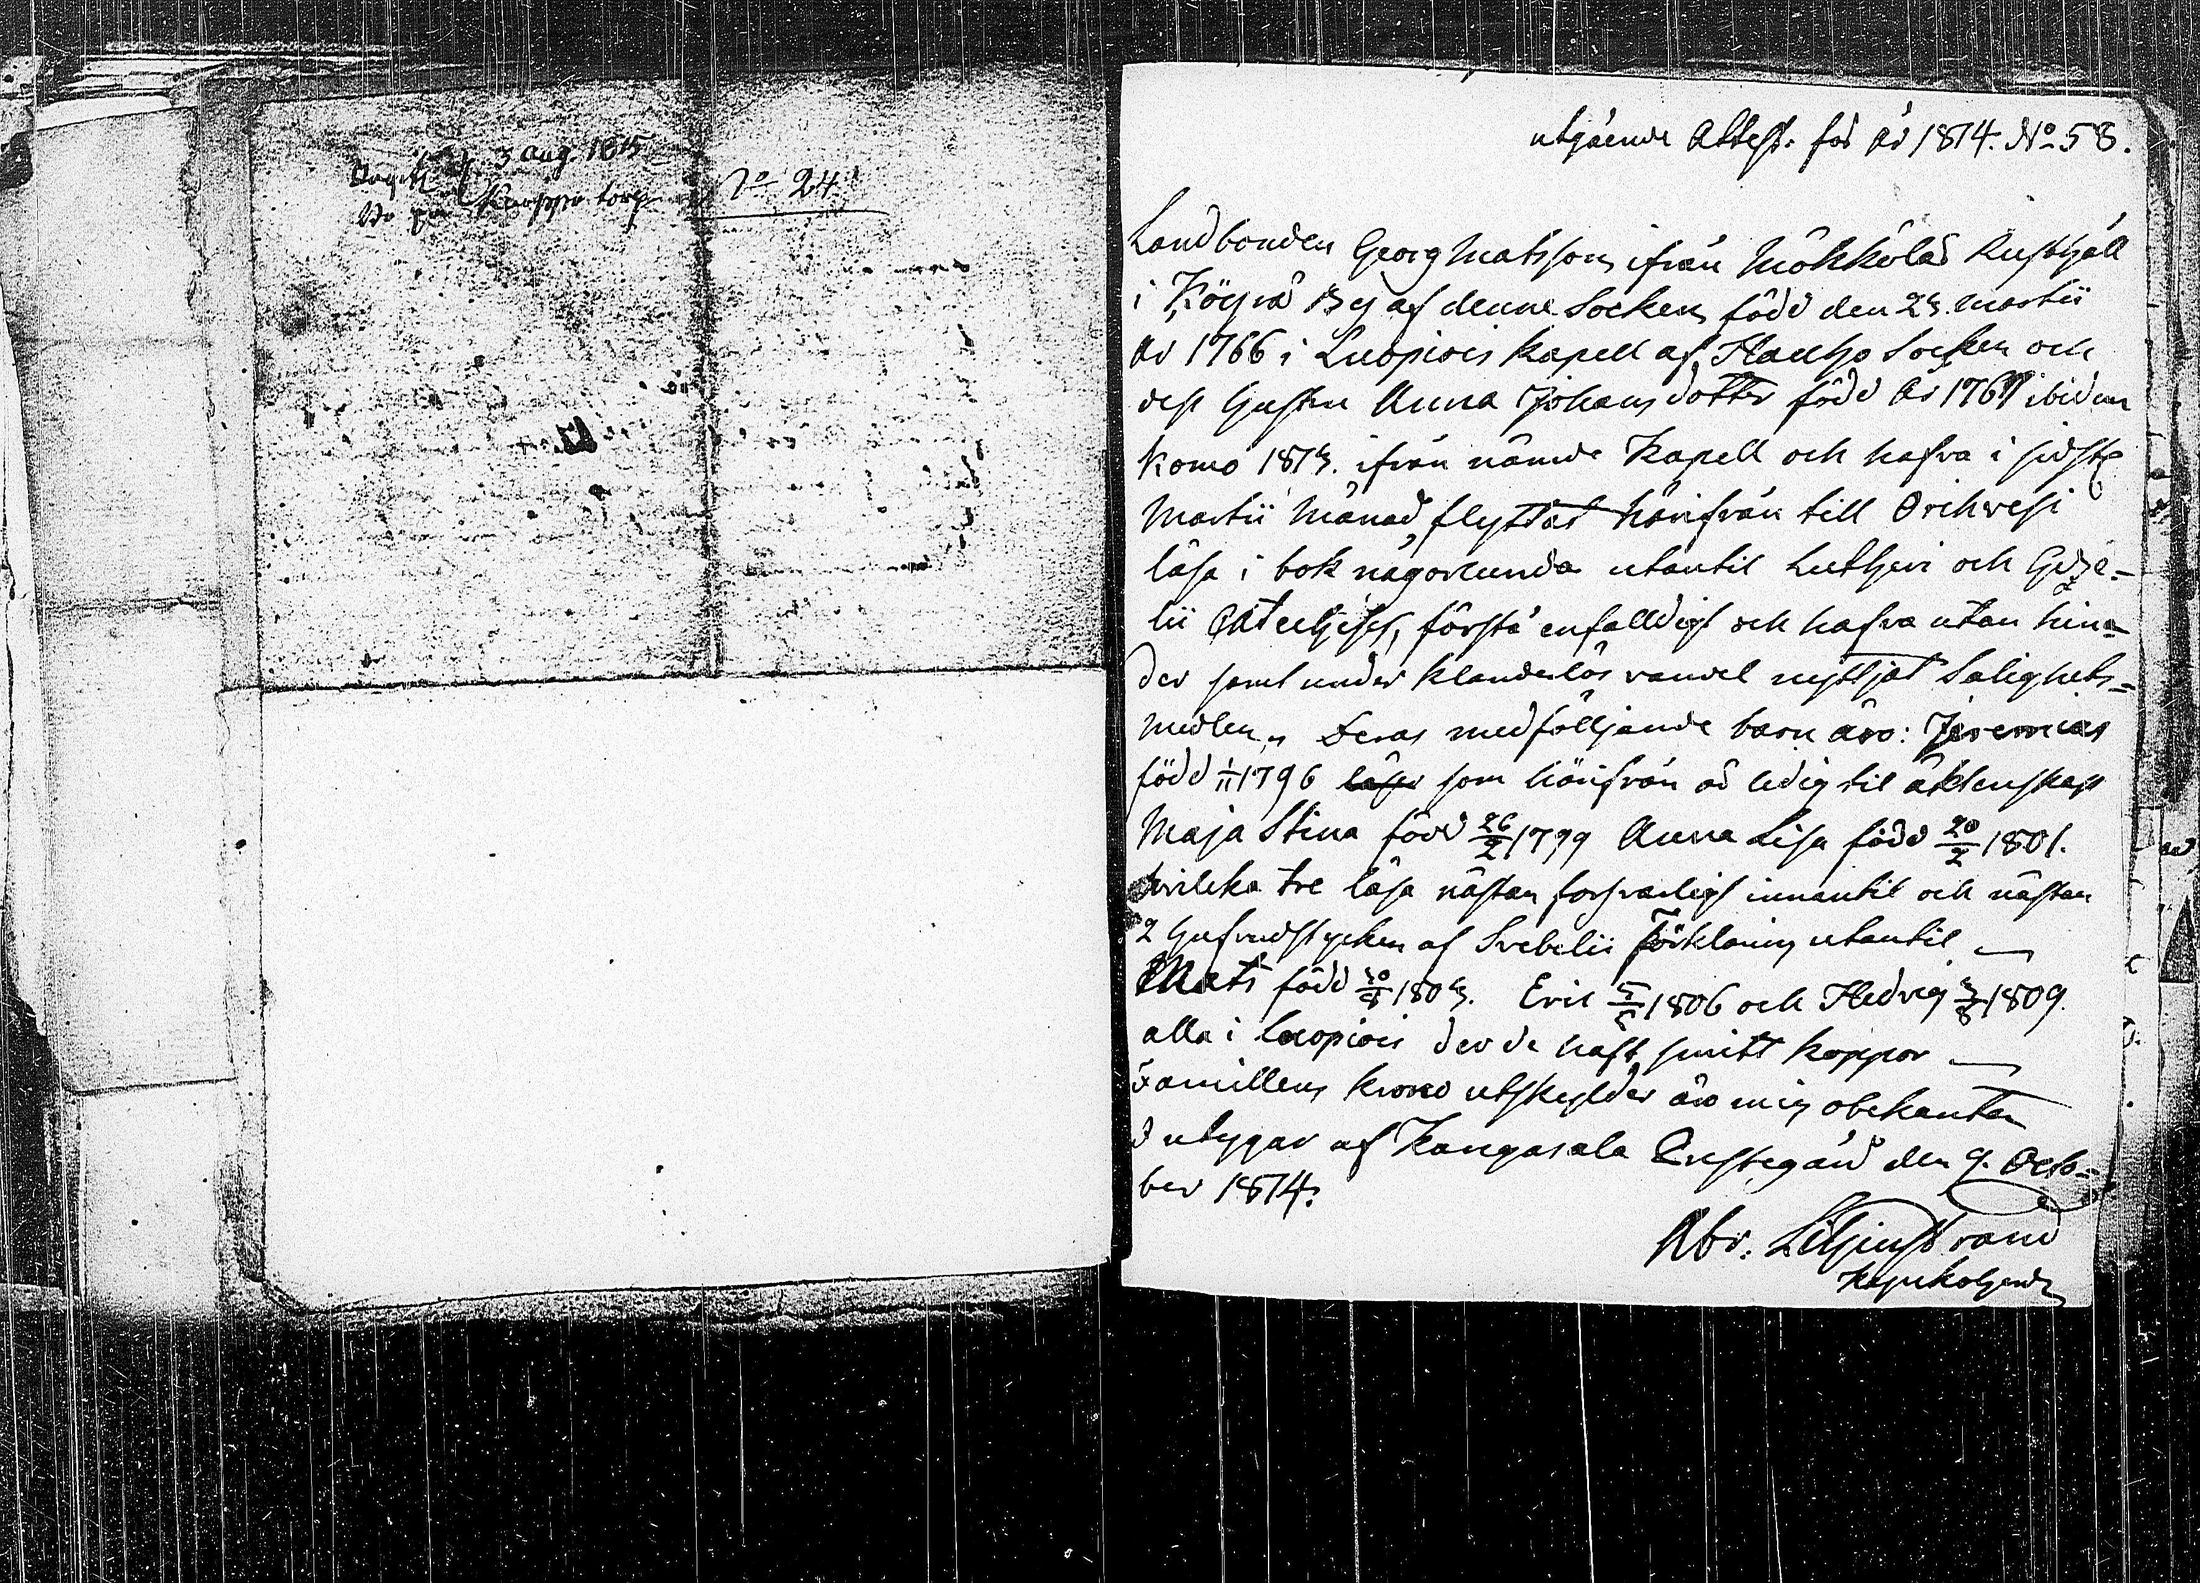 3 Aug. 1815
torp
No 24
utgående Attest. för År 1814. No 58.
Landbonden Georg Matsson ifrån Mökkölä Rusthåll
i Köyrä By af denne Socken född den 23. martii
År 1766 i Luopiois Kapell af Hauho Socken och
dess Hustru Anna Johansdotter född År 1767 ibidem
komo 1813. ifrån nämde Kapell och hafva i sidste
Martii Månad flyttat härifrån till Orihvesi
läsa i bok någorlunda utantil Lutheri och Geze=
lii Catecheser, förstå enfalldigt och hafva utan hin=
der samt under klanderlös vandel nyttjat Salighets=
medlen. Deras medfölljande barn äro: Jeremias
född 1/11 1796 läser som härifrån är ledig til äktenskap
Maja Stina född 26/2 1799 Anna Lisa född 20/2 1801.
hvilcka tre läsa nästan försvarligt innantil och nästan
2 Hufvudstycken af Svebelii Förklaring utantil
Mats född 30/8 1803. Eric 5/5 1806 och Hedvig 3/8 1809.
alla i Luopiois der de haft smitt koppor
Famillens krono utskylder äro mig obekanta
d utgar af Kangasala Prestegård den 9. Octo=
ber 1814.
Abr. Liljenstrand